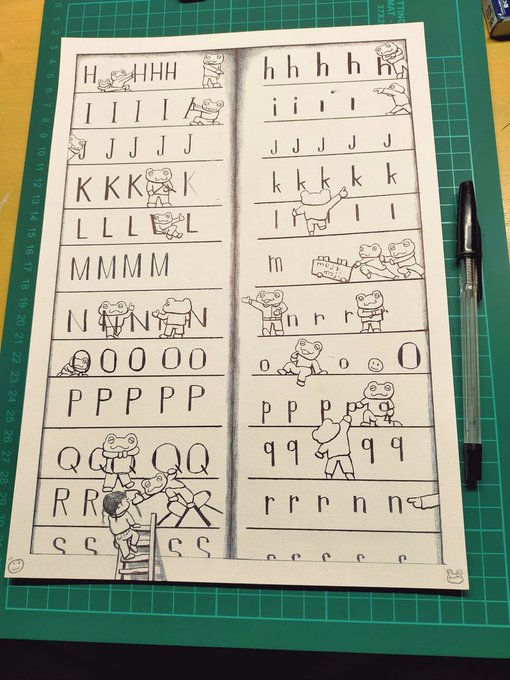 H H H H
I I I I
J J J J J
K K K K
L L L L L
M M M M
N N N
O O O O
P P P P P
Q Q Q Q
R R
S S S S
h h h h h
i i i i
J J J J J
k k k k k
l l l l
m
n r r
o o o O
p p p p
q q q q
r r r n n